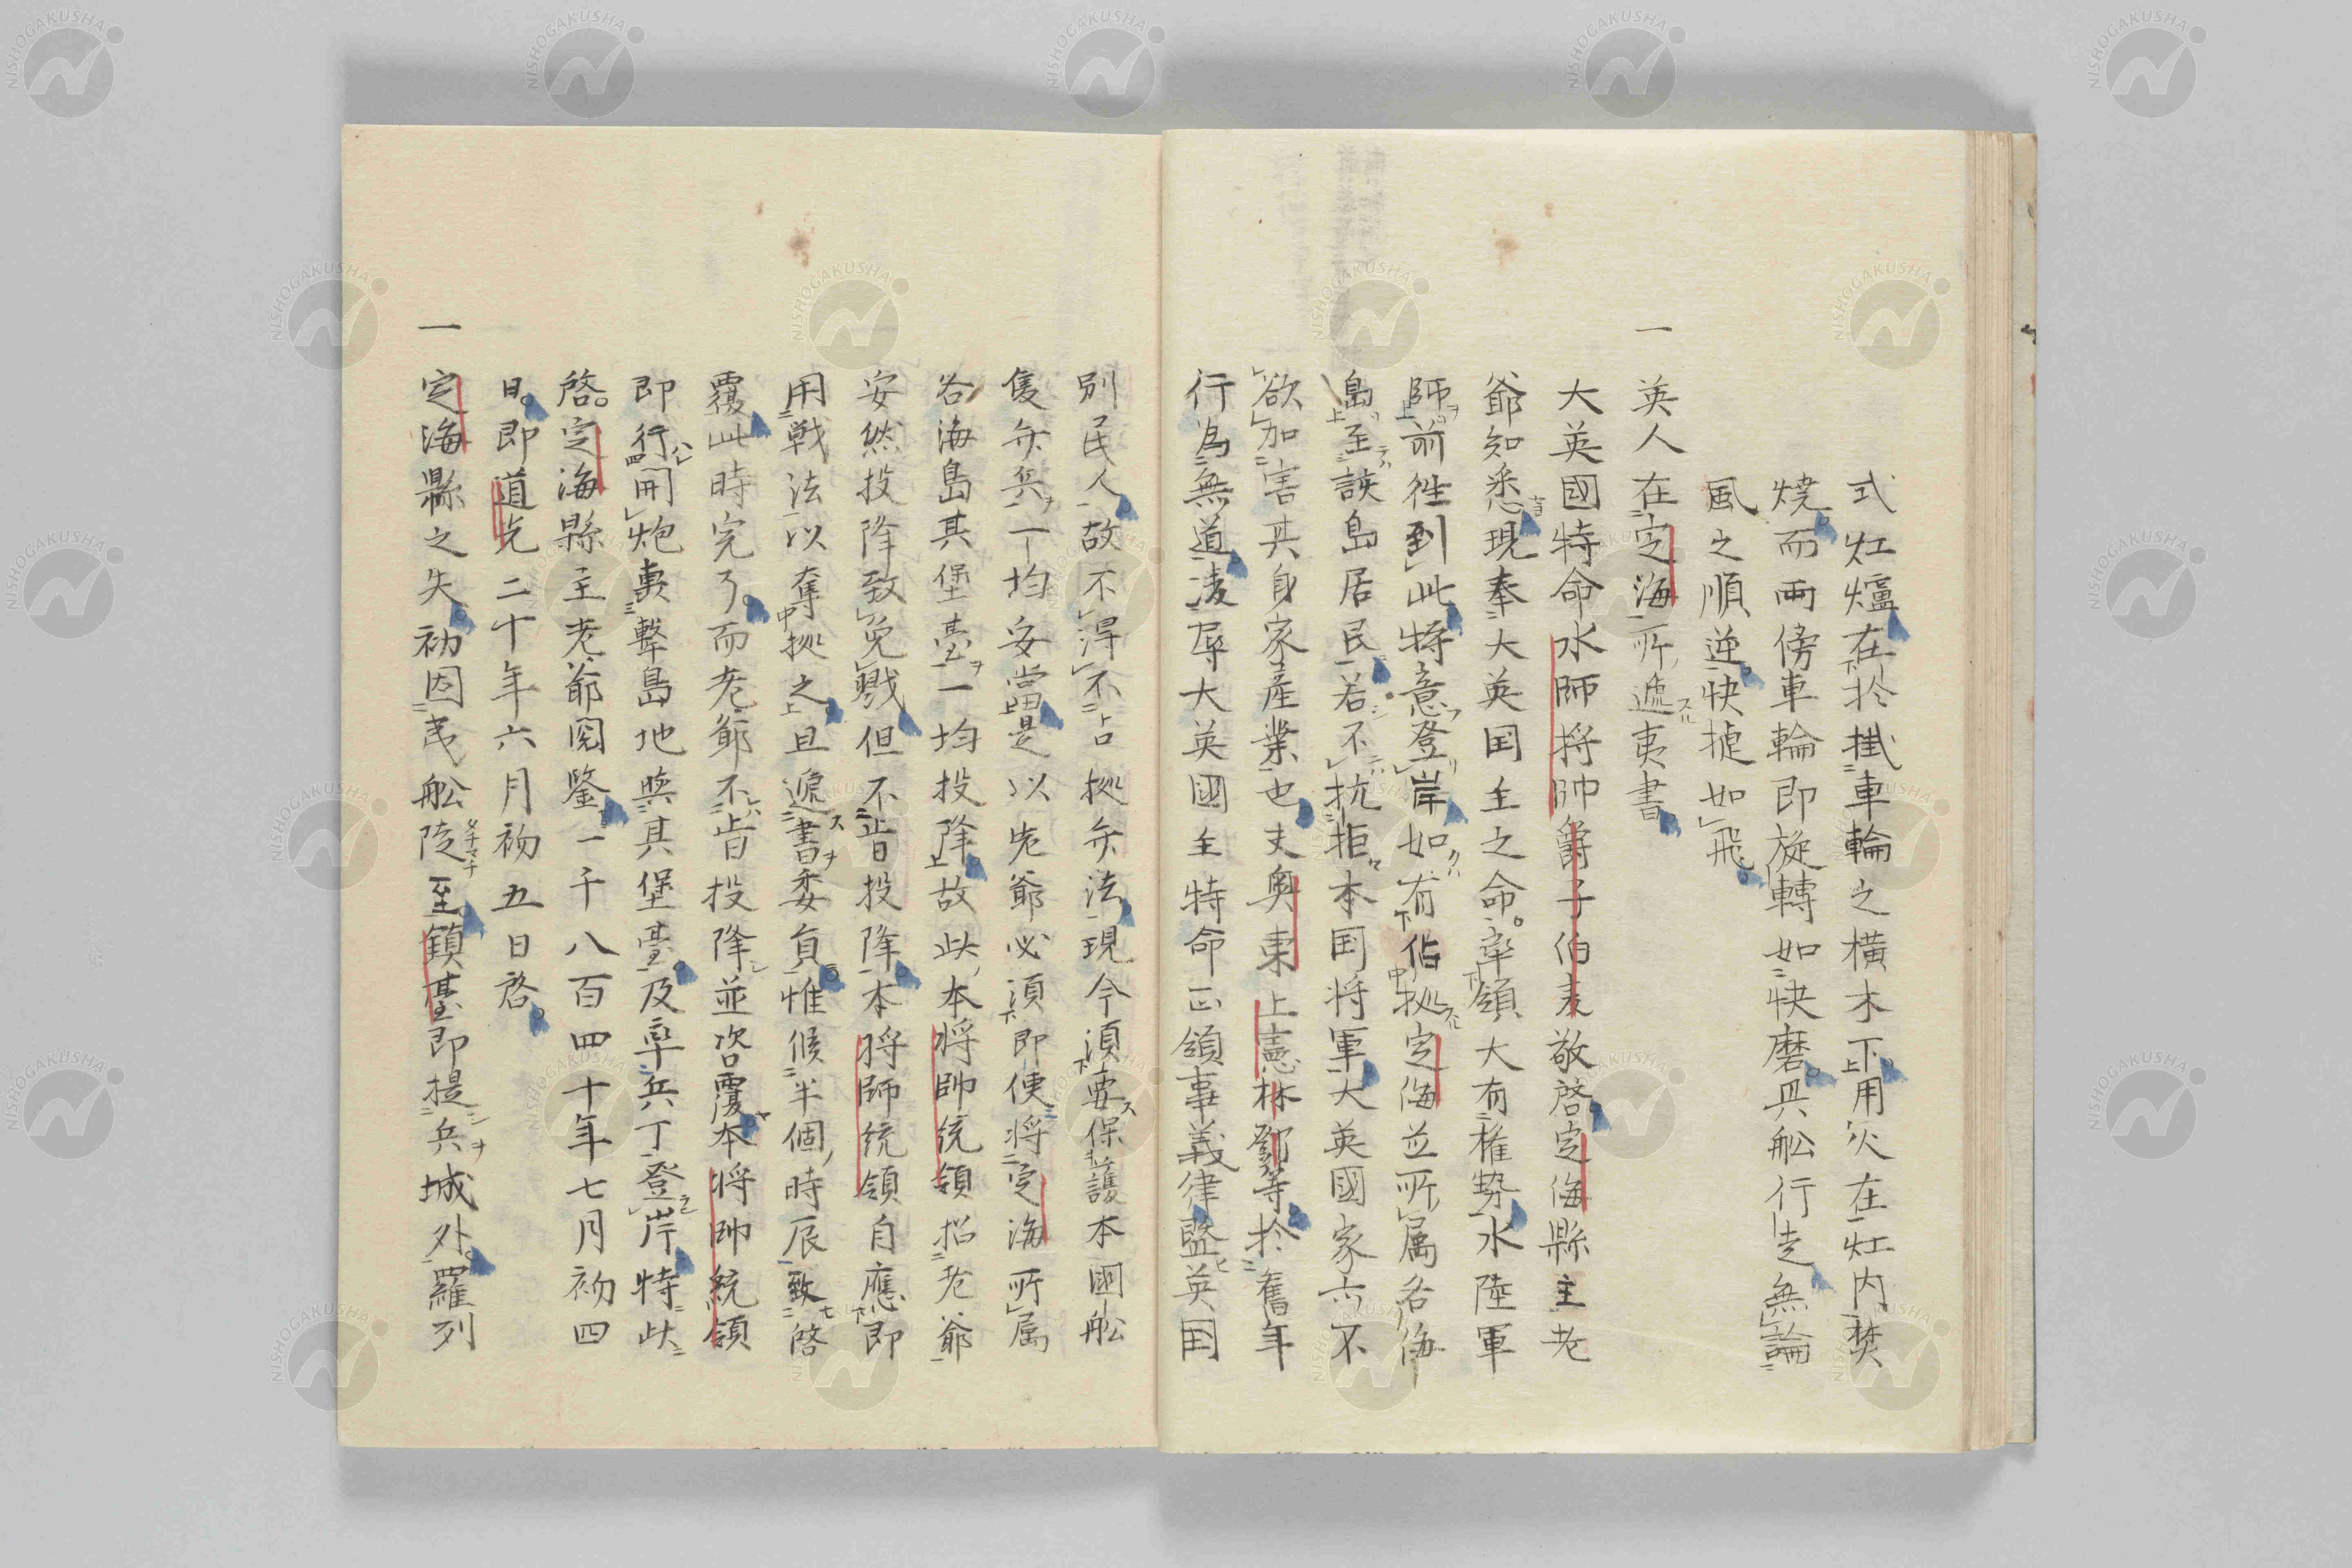 式灶爐在於掛車輪之横木下用火在灶内焚
燒而兩傍車輪即旋轉如快磨與船行走無論
風之順逆快捷如飛
一 英人在定海所遞夷書
大英國特命水師将帥爵子伯麦敬啓定海縣主老
爺知悉現奉大英国主之命率領大有権勢水陸軍
師前往到此特意登岸如有佔拠定海並所属各海
島至該島居民若不抗拒本国将軍大英國家亦不
欲加害其身家産業也丈奥東上憲林鄧等於舊年
行為無道凌辱大英國主特命正領事義律曁英国
別民人故不得不占拠弁法現今須要保護本國船
隻弁兵丁均安當是以老爺必須即便将定海所属
各海島其堡臺一均投降故此本将帥統領招老爺
安然投降致免戮但不肯投降本将師統領自應即
用戦法以奪拠之且遞書委員惟候半個時辰致啓
覆此時完了而老爺不肯投降並咨覆本将帥統領
即行開炮轟撃島地與其堡臺及率兵丁登岸特此
啓定海縣主老爺閲鑒一千八百四十年七月初四
日即道光二十年六月初五日啓
一 定海縣之失初因夷船陡至鎮臺即提兵城外羅列
NISHOGAKUSHA